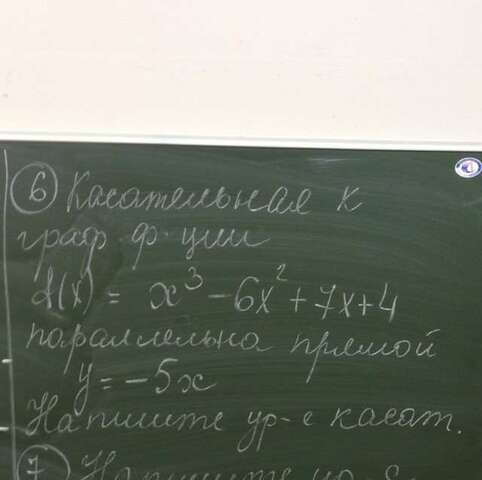 ⑥ Касательная к
граф. ф-ции
f(x) = x³ - 6x² + 7x + 4
параллельна прямой
y = -5x
Напишите ур-е касат.
⑦ Напишите ур-е